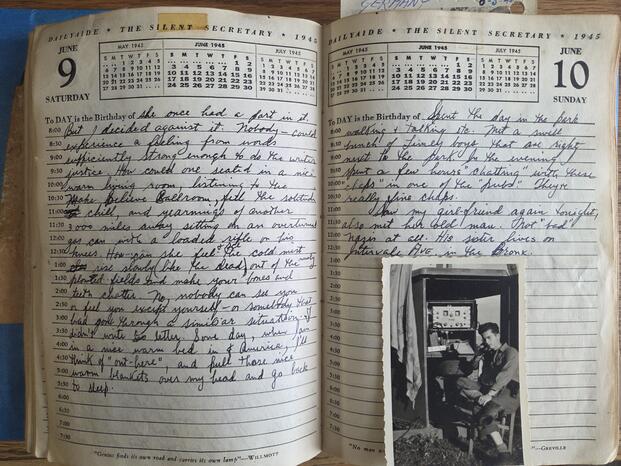 DAILYAIDE ★ THE SILENT SECRETARY ★ 1945
JUNE
9
SATURDAY
MAY 1945
JUNE 1945
JULY 1945
S M T W T F S
To DAY is the Birthday of she once had a part in it.
8:00 But I decided against it. Nobody — could
8:30 experience a feeling from words
9:00 sufficiently strong enough to do the writer
9:30 justice. How could one seated in a nice
10:00 warm living room, listening to the
10:30 Make Believe Ballroom, feel the solitude
11:00 chill, and yearnings of another
11:30 3000 miles away sitting on an overturned
12:00 gas can with a loaded rifle on his
12:30 knees. How can she feel the cold mist
1:00 rise slowly like the dead out of the
1:30 plowed fields and make your bones and
2:00 teeth chatter. No, nobody can see you
2:30 or feel you except yourself — or somebody that
3:00 had gone through a similar situation. I
3:30 didn't write the letter. Some day, when I am
4:00 in a nice warm bed in America, I'll
4:30 think of "out-here", and pull those nice
5:00 warm blankets over my head and go back
5:30 to sleep.
6:00
6:30
7:00
7:30
"Genius finds its own road and carries its own lamp"—WILLMOTT
GERMANY
DAILYAIDE ★ THE SILENT SECRETARY ★ 1945
MAY 1945
JUNE 1945
JULY 1945
S M T W T F S
JUNE
10
SUNDAY
To DAY is the Birthday of Spent the day in the park
8:00 walking & talking etc. Met a swell
8:30 bunch of limey boys that are right
9:00 next to the park. In the evening I
9:30 spent a few hours "chatting" with these
10:00 "chaps" in one of the "pubs" They're
10:30 really fine chaps.
11:00 Saw my girl-friend again tonight,
11:30 also met her old man. Not "bad"
12:00 at all. His sister lives on
12:30 Ave, in the Bronx.
1:00
"No man
"—GREVILLE